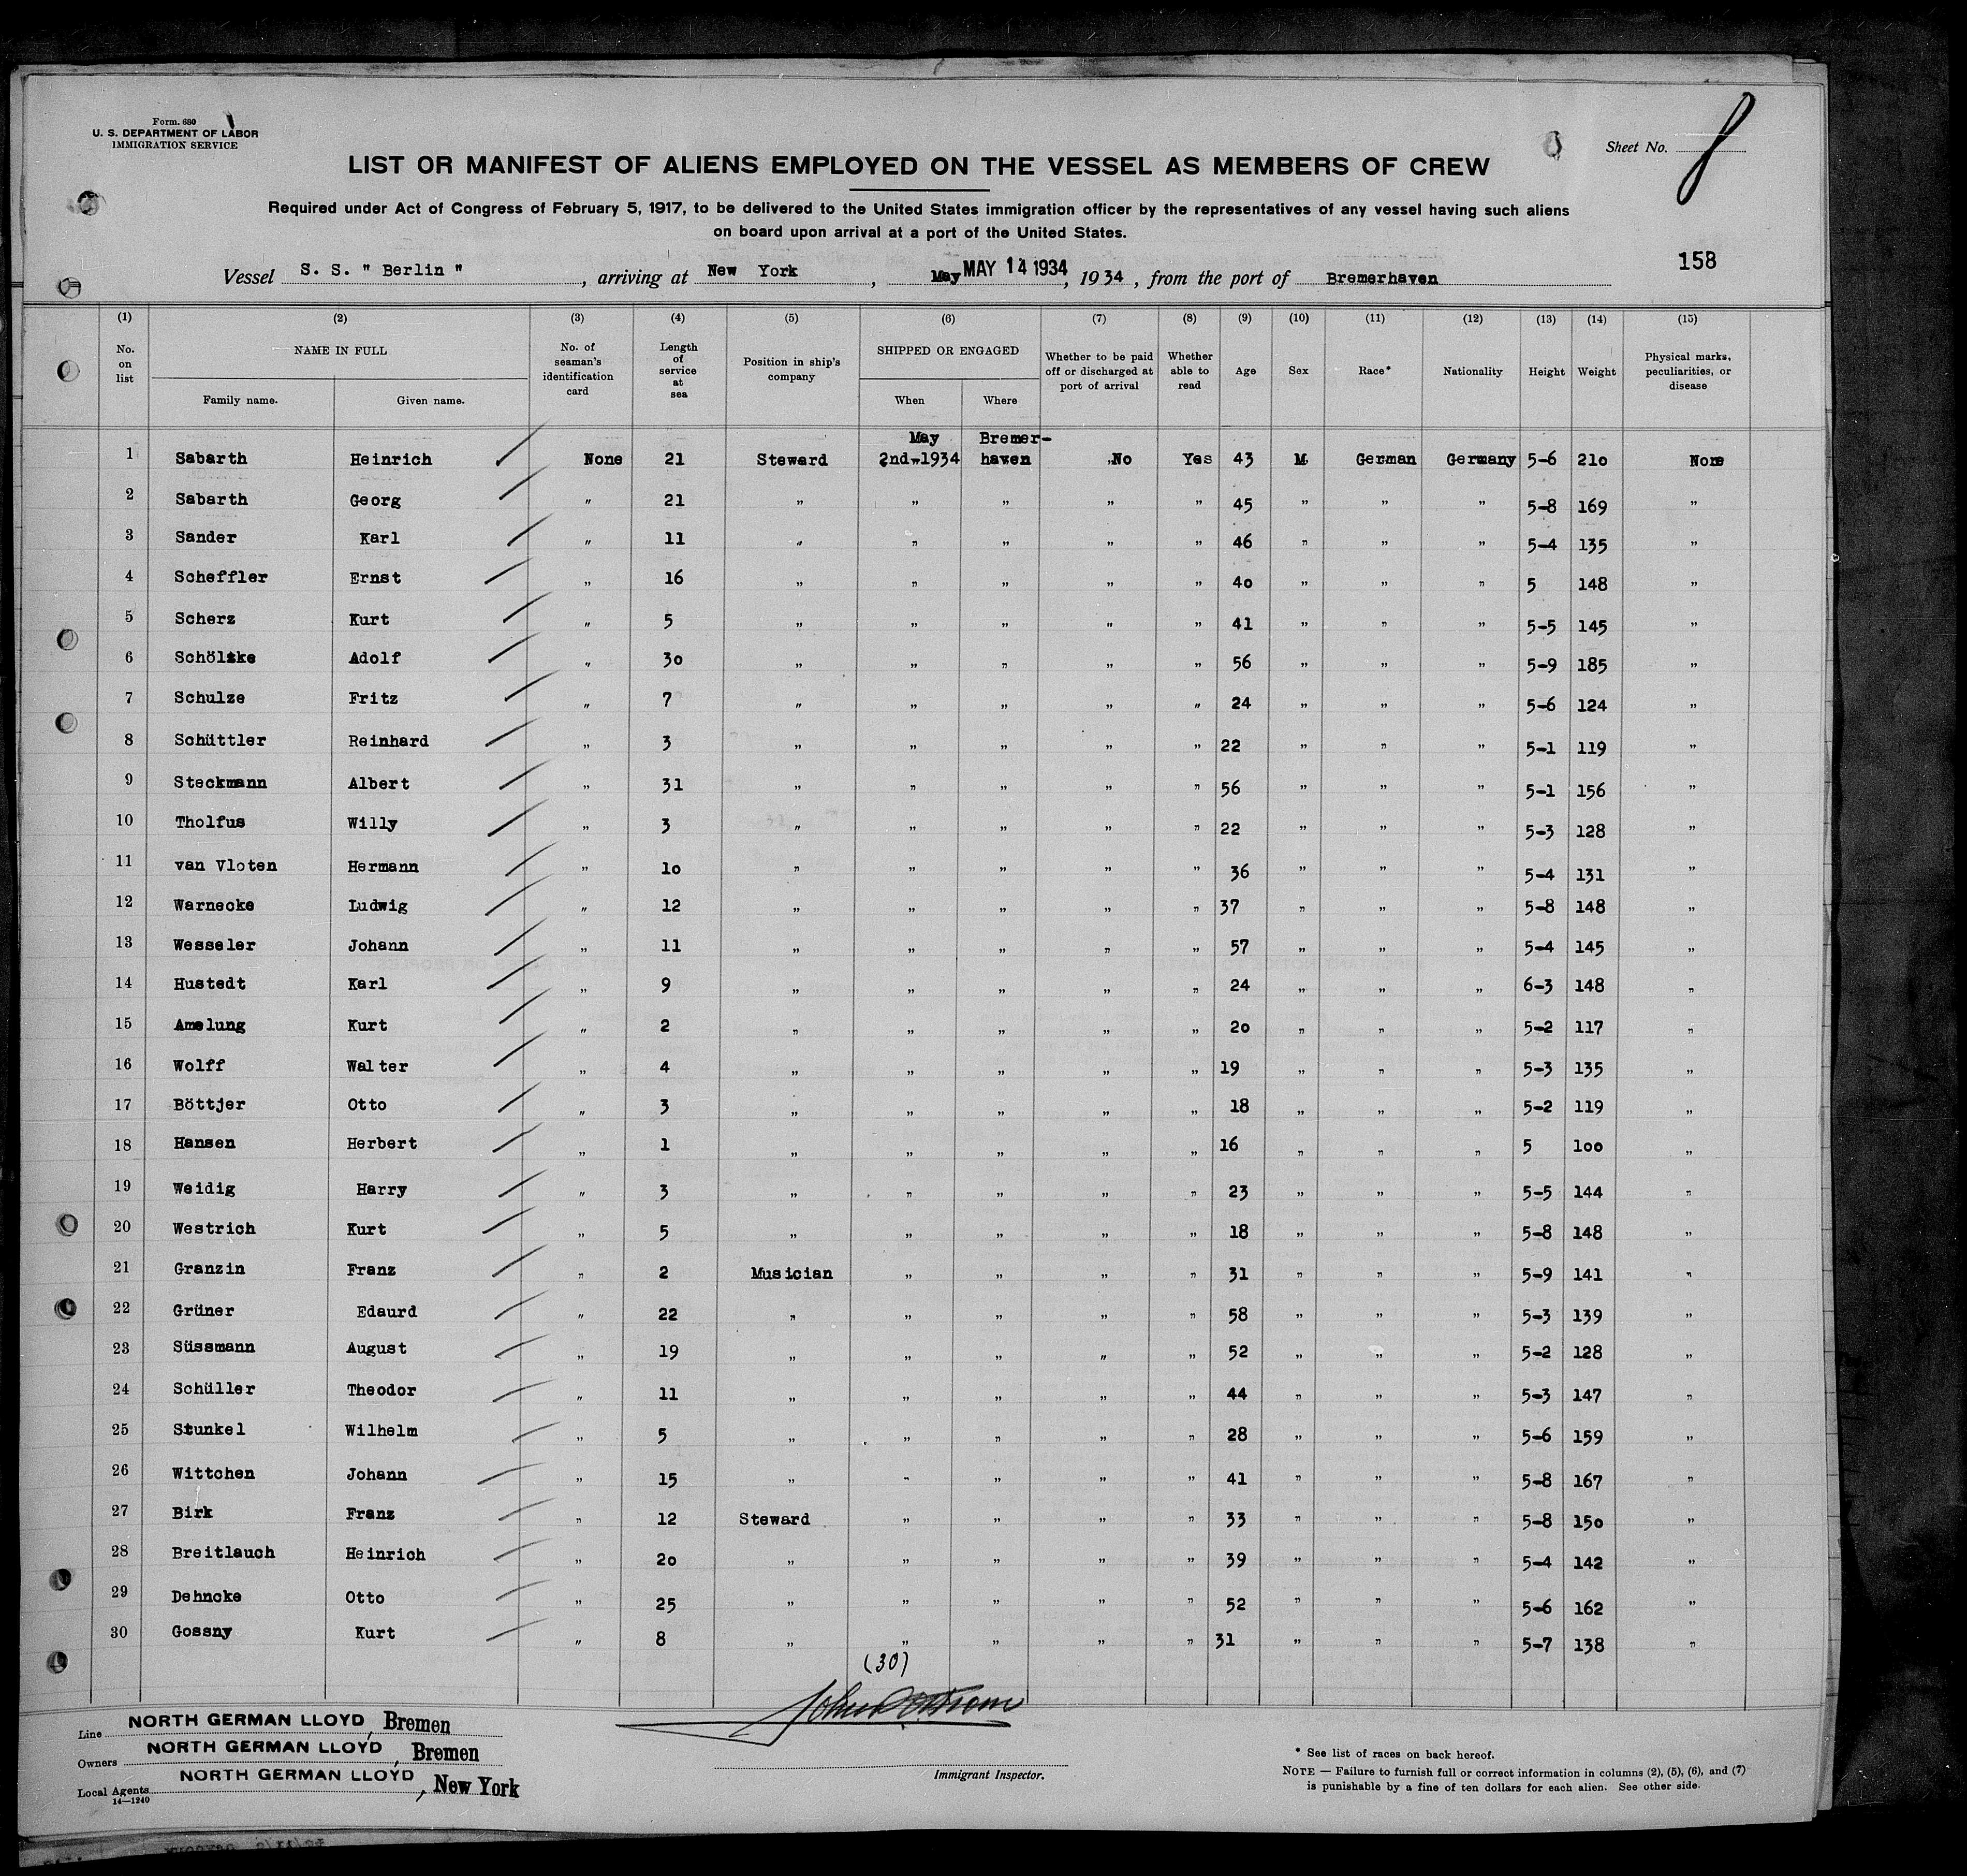 Form. 680
U. S. DEPARTMENT OF LABOR
IMMIGRATION SERVICE
Sheet No.
LIST OR MANIFEST OF ALIENS EMPLOYED ON THE VESSEL AS MEMBERS OF CREW
Required under Act of Congress of February 5, 1917, to be delivered to the United States immigration officer by the representatives of any vessel having such aliens
on board upon arrival at a port of the United States.
158
Vessel S. S. " Berlin " , arriving at New York , May MAY 14 1934 , 1934 , from the port of Bremerhaven
(1) (2) (3) (4) (5) (6) (7) (8) (9) (10) (11) (12) (13) (14) (15)
No. on list NAME IN FULL Family name. Given name. No. of seaman's identification card Length of service at sea Position in ship's company SHIPPED OR ENGAGED When Where Whether to be paid off or discharged at port of arrival Whether able to read Age Sex Race* Nationality Height Weight Physical marks, peculiarities, or disease
May Bremer-
1 Sabarth Heinrich None 21 Steward 2nd 1934 haven No Yes 43 M German Germany 5-6 210 None
2 Sabarth Georg " 21 " " " " " 45 " " " 5-8 169 "
3 Sander Karl " 11 " " " " " 46 " " " 5-4 135 "
4 Scheffler Ernst " 16 " " " " " 40 " " " 5 148 "
5 Scherz Kurt " 5 " " " " " 41 " " " 5-5 145 "
6 Schöltke Adolf " 30 " " " " " 56 " " " 5-9 185 "
7 Schulze Fritz " 7 " " " " " 24 " " " 5-6 124 "
8 Schüttler Reinhard " 3 " " " " " 22 " " " 5-1 119 "
9 Steckmann Albert " 31 " " " " " 56 " " " 5-1 156 "
10 Tholfus Willy " 3 " " " " " 22 " " " 5-3 128 "
11 van Vloten Hermann " 10 " " " " " 36 " " " 5-4 131 "
12 Warnecke Ludwig " 12 " " " " " 37 " " " 5-8 148 "
13 Wesseler Johann " 11 " " " " " 57 " " " 5-4 145 "
14 Hustedt Karl " 9 " " " " " 24 " " " 6-3 148 "
15 Amelung Kurt " 2 " " " " " 20 " " " 5-2 117 "
16 Wolff Walter " 4 " " " " " 19 " " " 5-3 135 "
17 Böttjer Otto " 3 " " " " " 18 " " " 5-2 119 "
18 Hansen Herbert " 1 " " " " " 16 " " " 5 100 "
19 Weidig Harry " 3 " " " " " 23 " " " 5-5 144 "
20 Westrich Kurt " 5 " " " " " 18 " " " 5-8 148 "
21 Granzin Franz " 2 Musician " " " " 31 " " " 5-9 141 "
22 Grüner Edaurd " 22 " " " " " 58 " " " 5-3 139 "
23 Süssmann August " 19 " " " " " 52 " " " 5-2 128 "
24 Schüller Theodor " 11 " " " " " 44 " " " 5-3 147 "
25 Stunkel Wilhelm " 5 " " " " " 28 " " " 5-6 159 "
26 Wittchen Johann " 15 " " " " " 41 " " " 5-8 167 "
27 Birk Franz " 12 Steward " " " " 33 " " " 5-8 150 "
28 Breitlauch Heinrich " 20 " " " " " 39 " " " 5-4 142 "
29 Dehncke Otto " 25 " " " " " 52 " " " 5-6 162 "
30 Gossny Kurt " 8 " " " " " 31 " " " 5-7 138 "
(30)
Line NORTH GERMAN LLOYD, Bremen
Owners NORTH GERMAN LLOYD, Bremen
Local Agents NORTH GERMAN LLOYD, New York
14—1240
Immigrant Inspector.
* See list of races on back hereof.
NOTE — Failure to furnish full or correct information in columns (2), (5), (6), and (7)
is punishable by a fine of ten dollars for each alien. See other side.